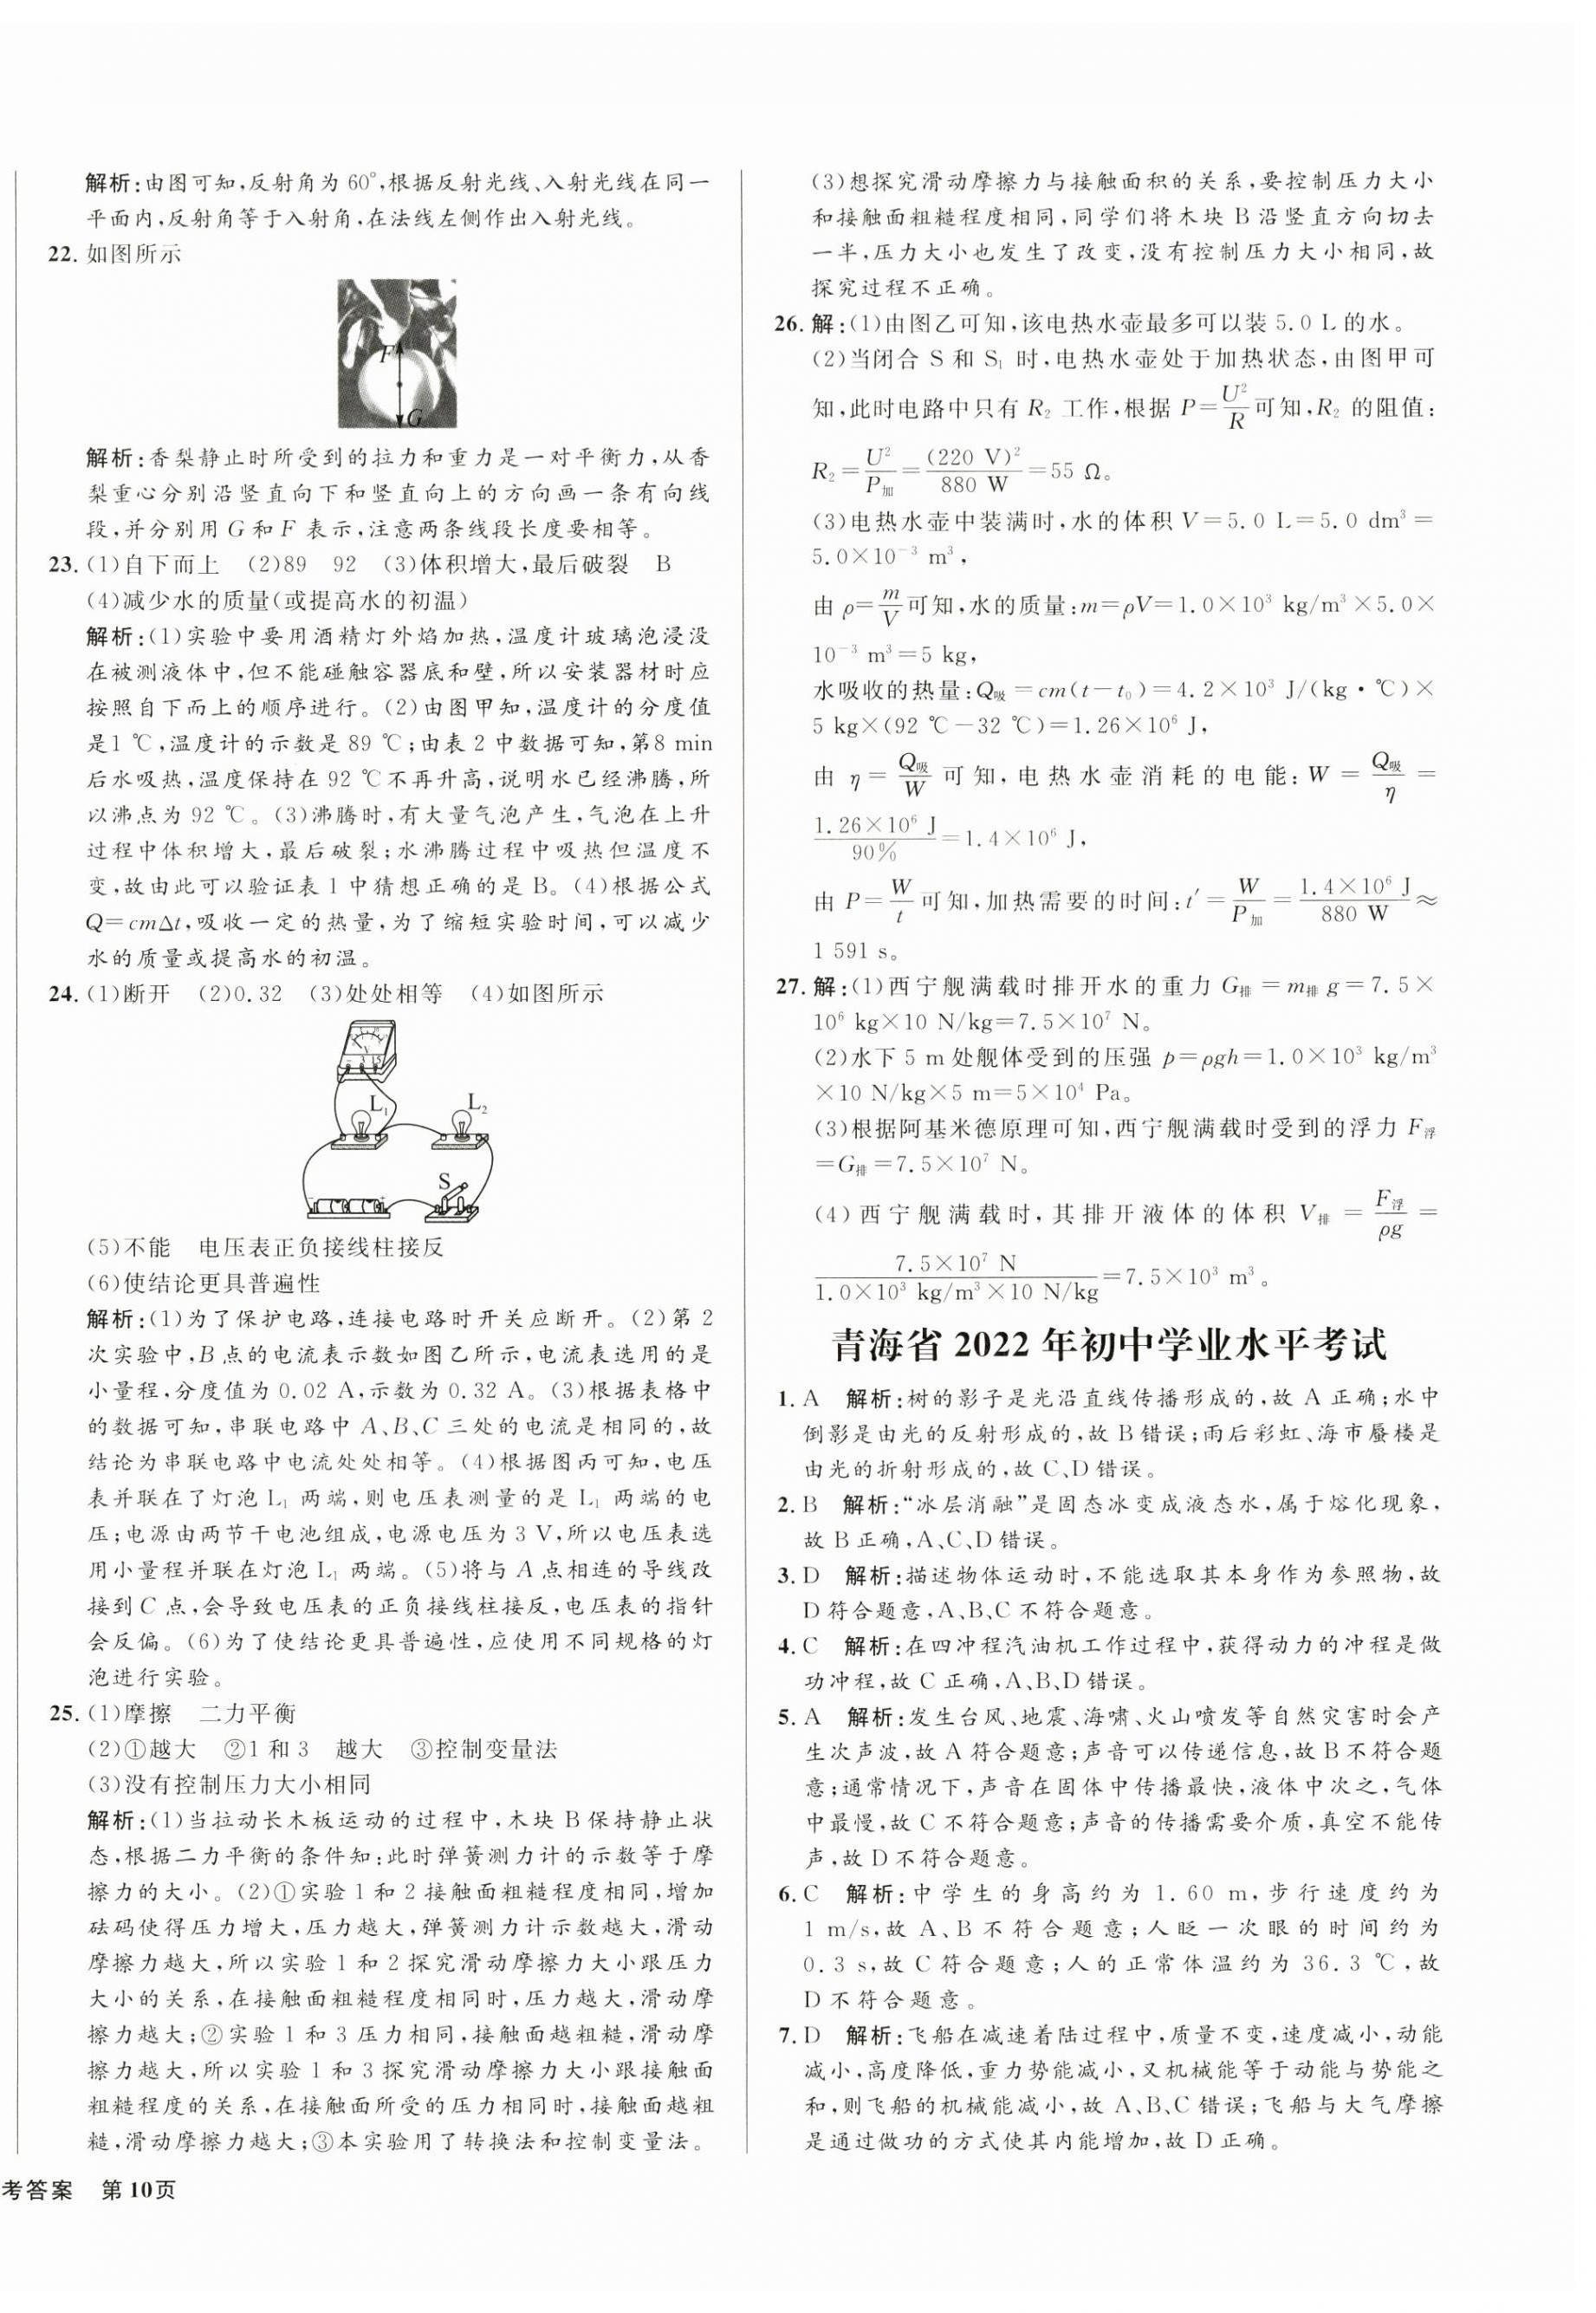 解析:由图可知,反射角为 60°,根据反射光线、入射光线在同一
平面内,反射角等于入射角,在法线左侧作出入射光线。
22. 如图所示
F
G
解析:香梨静止时所受到的拉力和重力是一对平衡力,从香
梨重心分别沿竖直向下和竖直向上的方向画一条有向线
段,并分别用 G 和 F 表示,注意两条线段长度要相等。
23. (1)自下而上 (2)89 92 (3)体积增大,最后破裂 B
(4)减少水的质量(或提高水的初温)
解析:(1)实验中要用酒精灯外焰加热,温度计玻璃泡浸没
在被测液体中,但不能碰触容器底和壁,所以安装器材时应
按照自下而上的顺序进行。(2)由图甲知,温度计的分度值
是1 ℃,温度计的示数是 89 ℃;由表 2 中数据可知,第8 min
后水吸热,温度保持在 92 ℃不再升高,说明水已经沸腾,所
以沸点为 92 ℃。(3)沸腾时,有大量气泡产生,气泡在上升
过程中体积增大,最后破裂;水沸腾过程中吸热但温度不
变,故由此可以验证表 1 中猜想正确的是 B。(4)根据公式
Q=cmΔt,吸收一定的热量,为了缩短实验时间,可以减少
水的质量或提高水的初温。
24. (1)断开 (2)0.32 (3)处处相等 (4)如图所示
L₁ L₂
S
(5)不能 电压表正负接线柱接反
(6)使结论更具普遍性
解析:(1)为了保护电路,连接电路时开关应断开。(2)第 2
次实验中,B 点的电流表示数如图乙所示,电流表选用的是
小量程,分度值为 0.02 A,示数为 0.32 A。(3)根据表格中
的数据可知,串联电路中 A、B、C 三处的电流是相同的,故
结论为串联电路中电流处处相等。(4)根据图丙可知,电压
表并联在了灯泡 L₁ 两端,则电压表测量的是 L₁ 两端的电
压;电源由两节干电池组成,电源电压为 3 V,所以电压表选
用小量程并联在灯泡 L₁ 两端。(5)将与 A 点相连的导线改
接到 C 点,会导致电压表的正负接线柱接反,电压表的指针
会反偏。(6)为了使结论更具普遍性,应使用不同规格的灯
泡进行实验。
25. (1)摩擦 二力平衡
(2)①越大 ②1 和 3 越大 ③控制变量法
(3)没有控制压力大小相同
解析:(1)当拉动长木板运动的过程中,木块 B 保持静止状
态,根据二力平衡的条件知:此时弹簧测力计的示数等于摩
擦力的大小。(2)①实验 1 和 2 接触面粗糙程度相同,增加
砝码使得压力增大,压力越大,弹簧测力计示数越大,滑动
摩擦力越大,所以实验 1 和 2 探究滑动摩擦力大小跟压力
大小的关系,在接触面粗糙程度相同时,压力越大,滑动摩
擦力越大;②实验 1 和 3 压力相同,接触面越粗糙,滑动摩
擦力越大,所以实验 1 和 3 探究滑动摩擦力大小跟接触面
粗糙程度的关系,在接触面所受的压力相同时,接触面越粗
糙,滑动摩擦力越大;③本实验用了转换法和控制变量法。
考答案 第 10页
(3)想探究滑动摩擦力与接触面积的关系,要控制压力大小
和接触面粗糙程度相同,同学们将木块 B 沿竖直方向切去
一半,压力大小也发生了改变,没有控制压力大小相同,故
探究过程不正确。
26. 解:(1)由图乙可知,该电热水壶最多可以装 5.0 L 的水。
(2)当闭合 S 和 S₁ 时,电热水壶处于加热状态,由图甲可
知,此时电路中只有 R₂ 工作,根据 P=U²/R可知,R₂ 的阻值:
R₂=U²/P加=(220 V)²/880 W=55 Ω。
(3)电热水壶中装满时,水的体积 V=5.0 L=5.0 dm³=
5.0×10⁻³ m³,
由 ρ=m/V可知,水的质量:m=ρV=1.0×10³ kg/m³×5.0×
10⁻³ m³=5 kg,
水吸收的热量:Q吸=cm(t-t₀)=4.2×10³ J/(kg·℃)×
5 kg×(92 ℃-32 ℃)=1.26×10⁶ J,
由 η=Q吸/W可知,电热水壶消耗的电能:W=Q吸/η=
1.26×10⁶ J/90%=1.4×10⁶ J,
由 P=W/t可知,加热需要的时间:t′=W/P加=1.4×10⁶ J/880 W≈
1 591 s。
27. 解:(1)西宁舰满载时排开水的重力 G排=m排g=7.5×
10⁶ kg×10 N/kg=7.5×10⁷ N。
(2)水下 5 m 处舰体受到的压强 p=ρgh=1.0×10³ kg/m³
×10 N/kg×5 m=5×10⁴ Pa。
(3)根据阿基米德原理可知,西宁舰满载时受到的浮力 F浮
=G排=7.5×10⁷ N。
(4)西宁舰满载时,其排开液体的体积 V排=F浮/ρg=
7.5×10⁷ N/1.0×10³ kg/m³×10 N/kg=7.5×10³ m³。
青海省 2022 年初中学业水平考试
1. A 解析:树的影子是光沿直线传播形成的,故 A 正确;水中
倒影是由光的反射形成的,故 B错误;雨后彩虹、海市蜃楼是
由光的折射形成的,故 C、D 错误。
2. B 解析:“冰层消融”是固态冰变成液态水,属于熔化现象,
故 B正确,A、C、D错误。
3. D 解析:描述物体运动时,不能选取其本身作为参照物,故
D符合题意,A、B、C 不符合题意。
4. C 解析:在四冲程汽油机工作过程中,获得动力的冲程是做
功冲程,故 C 正确,A、B、D错误。
5. A 解析:发生台风、地震、海啸、火山喷发等自然灾害时会产
生次声波,故 A 符合题意;声音可以传递信息,故 B不符合题
意;通常情况下,声音在固体中传播最快,液体中次之,气体
中最慢,故 C 不符合题意;声音的传播需要介质,真空不能传
声,故 D不符合题意。
6. C 解析:中学生的身高约为 1.60 m,步行速度约为
1 m/s,故 A、B 不符合题意;人眨一次眼的时间约为
0.3 s,故 C 符合题意;人的正常体温约为 36.3 ℃,故
D 不符合题意。
7. D 解析:飞船在减速着陆过程中,质量不变,速度减小,动能
减小,高度降低,重力势能减小,又机械能等于动能与势能之
和,则飞船的机械能减小,故 A、B、C 错误;飞船与大气摩擦
是通过做功的方式使其内能增加,故 D正确。